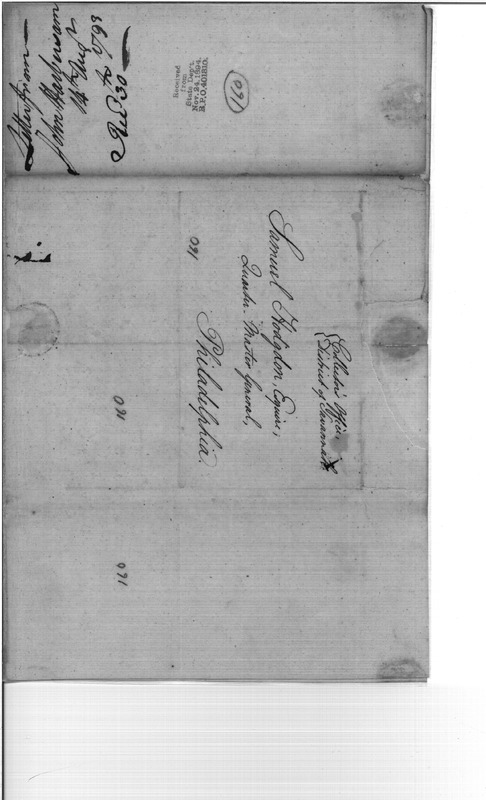 Letter from
John Habersham
14th Augt
1793
Rec'd 30
160
Received
from
State Dep't.
Nov. 24, 1894.
R.P.O. 401810.
Collector's Office
District of Savannah
Samuel Hodgdon, Esquire,
Quarter-Master General,
Philadelphia.
160
160
160